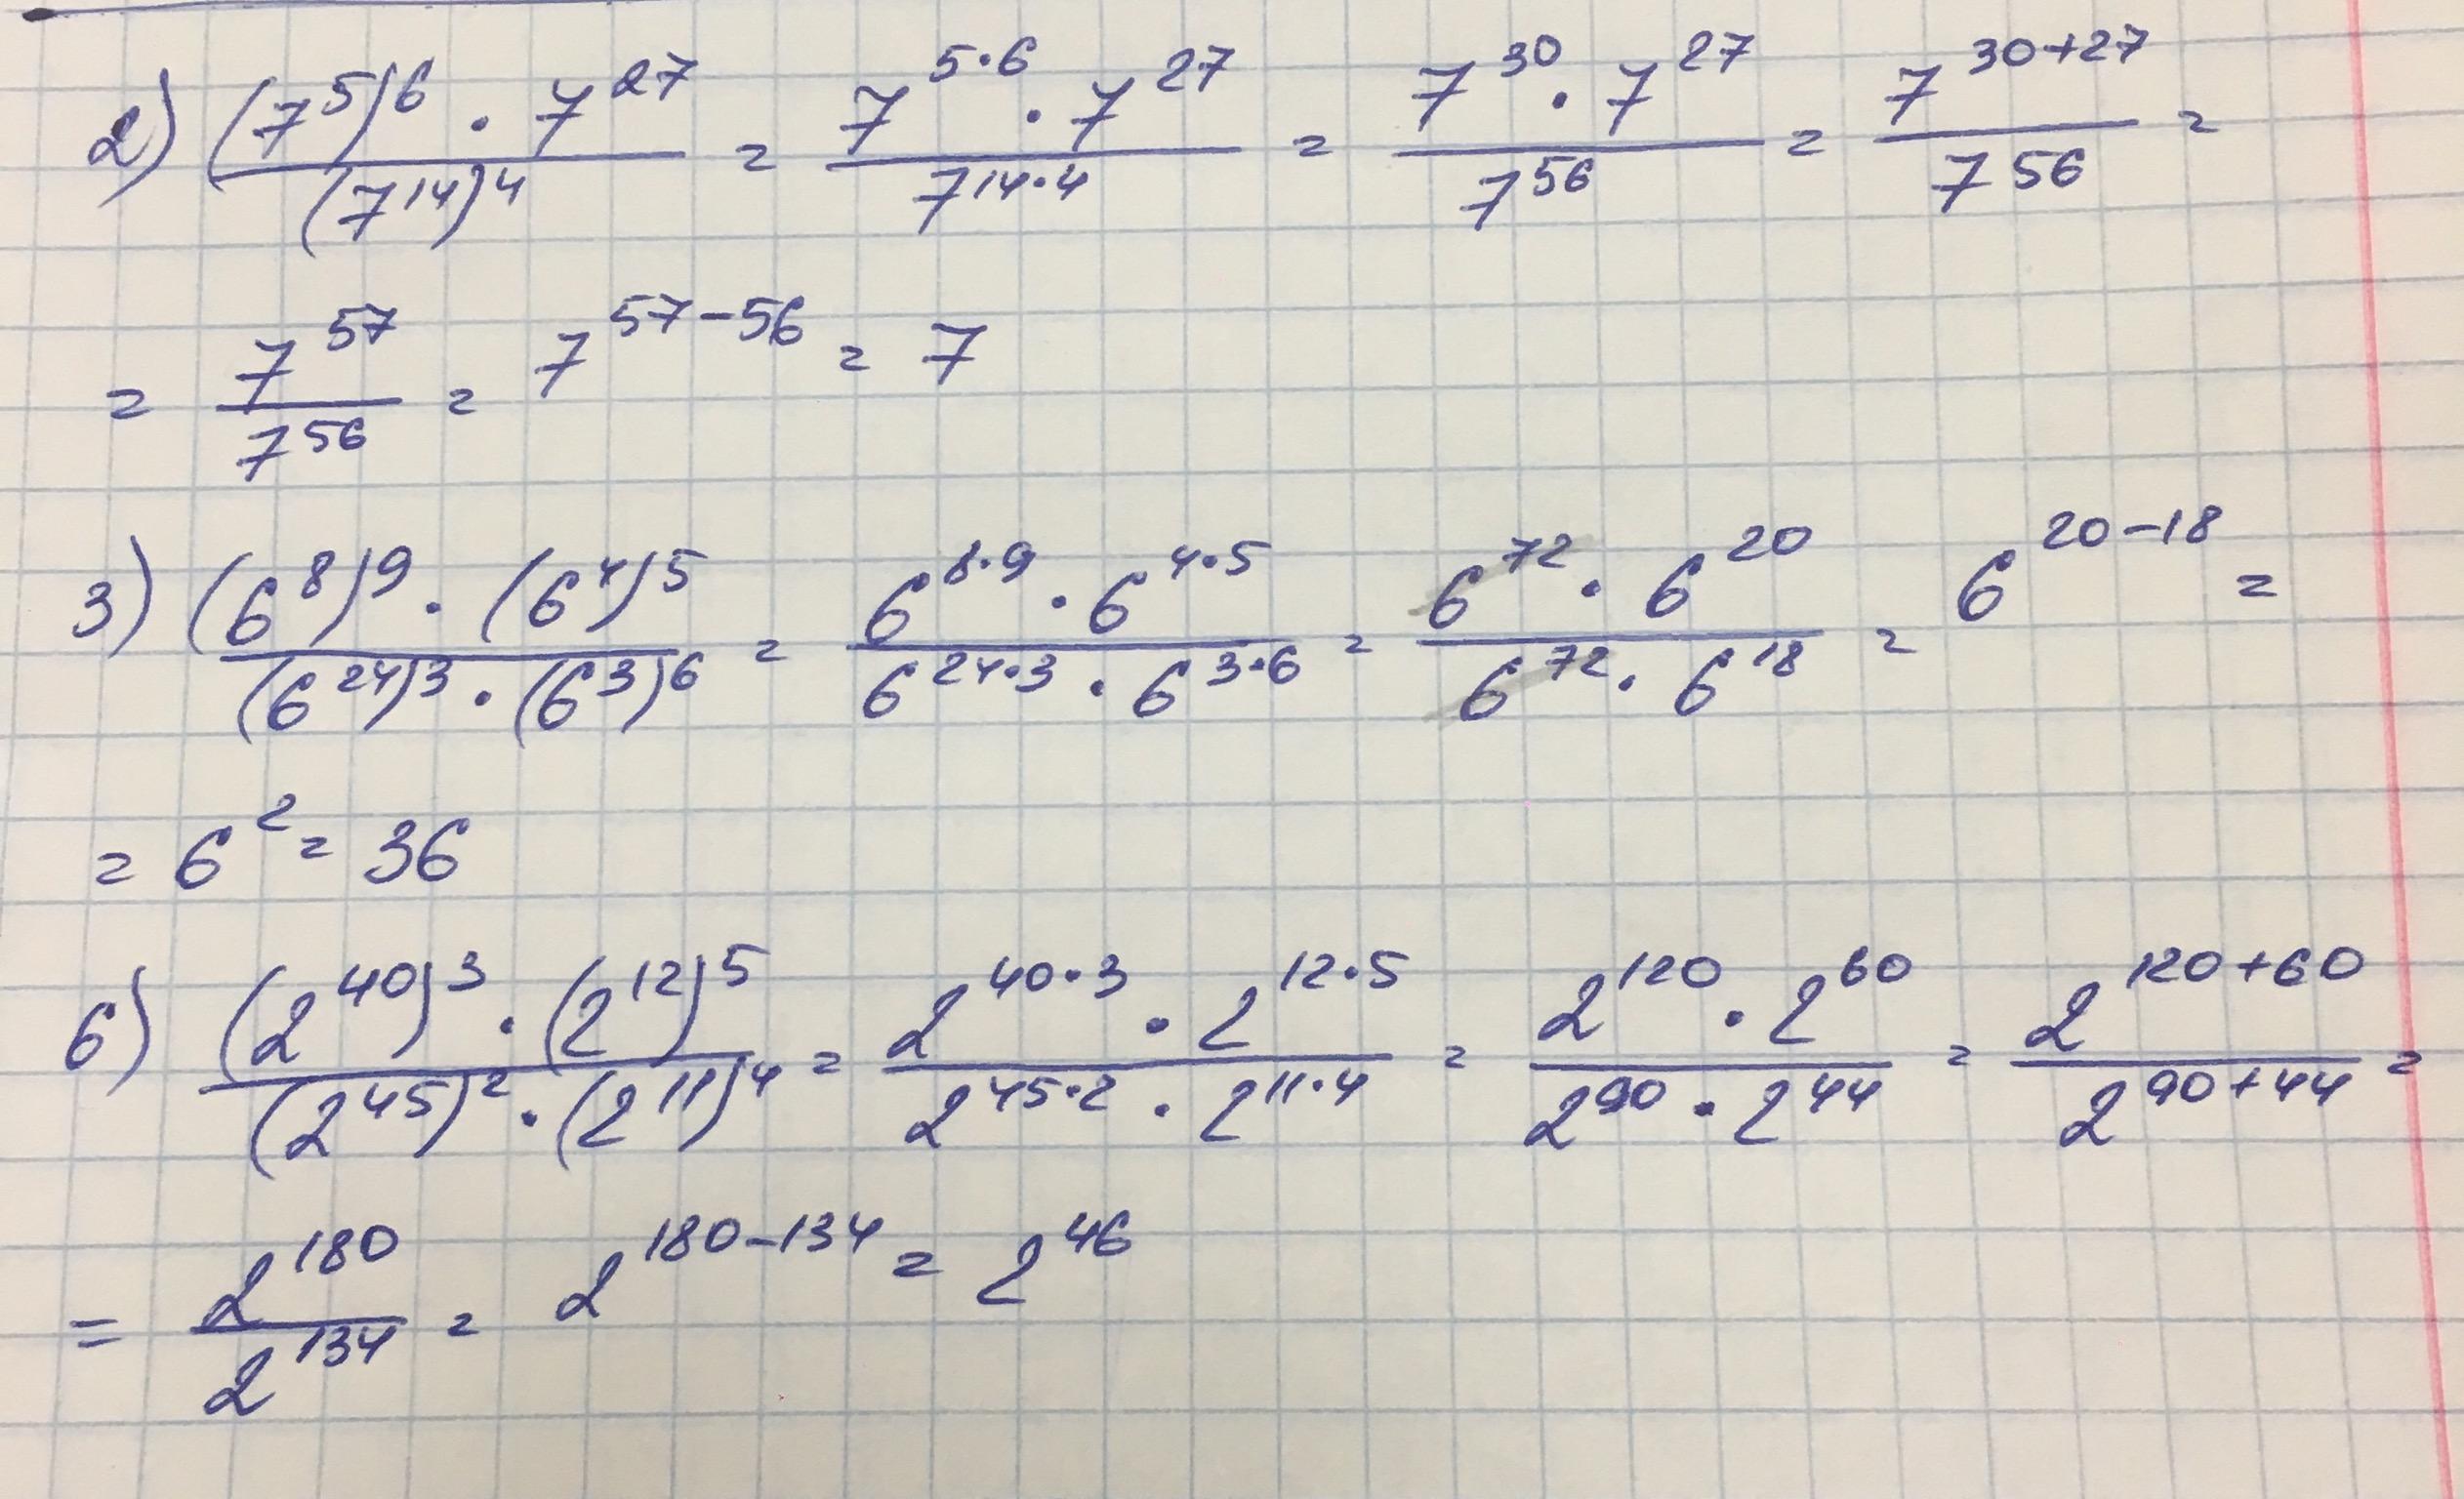 2) \frac{(7^5)^6 \cdot 7^{27}}{(7^{14})^4} = \frac{7^{5 \cdot 6} \cdot 7^{27}}{7^{14 \cdot 4}} = \frac{7^{30} \cdot 7^{27}}{7^{56}} = \frac{7^{30+27}}{7^{56}} =
= \frac{7^{57}}{7^{56}} = 7^{57-56} = 7
3) \frac{(6^8)^9 \cdot (6^4)^5}{(6^{24})^3 \cdot (6^3)^6} = \frac{6^{8 \cdot 9} \cdot 6^{4 \cdot 5}}{6^{24 \cdot 3} \cdot 6^{3 \cdot 6}} = \frac{6^{72} \cdot 6^{20}}{6^{72} \cdot 6^{18}} = 6^{20-18} =
= 6^2 = 36
6) \frac{(2^{40})^3 \cdot (2^{12})^5}{(2^{45})^2 \cdot (2^{11})^4} = \frac{2^{40 \cdot 3} \cdot 2^{12 \cdot 5}}{2^{45 \cdot 2} \cdot 2^{11 \cdot 4}} = \frac{2^{120} \cdot 2^{60}}{2^{90} \cdot 2^{44}} = \frac{2^{120+60}}{2^{90+44}} =
= \frac{2^{180}}{2^{134}} = 2^{180-134} = 2^{46}